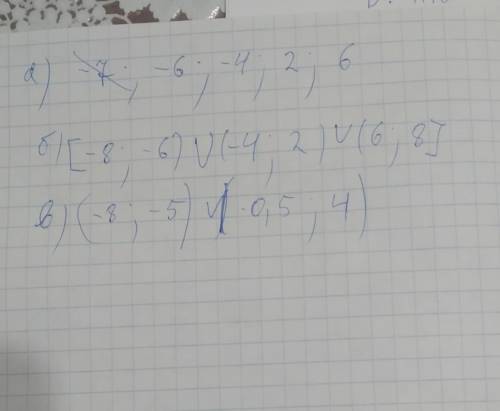 а) -7; -6; -4; 2; 6
б) [-8; -6) V (-4; 2) V (6; 8]
в) (-8; -5) V (-0,5; 4)